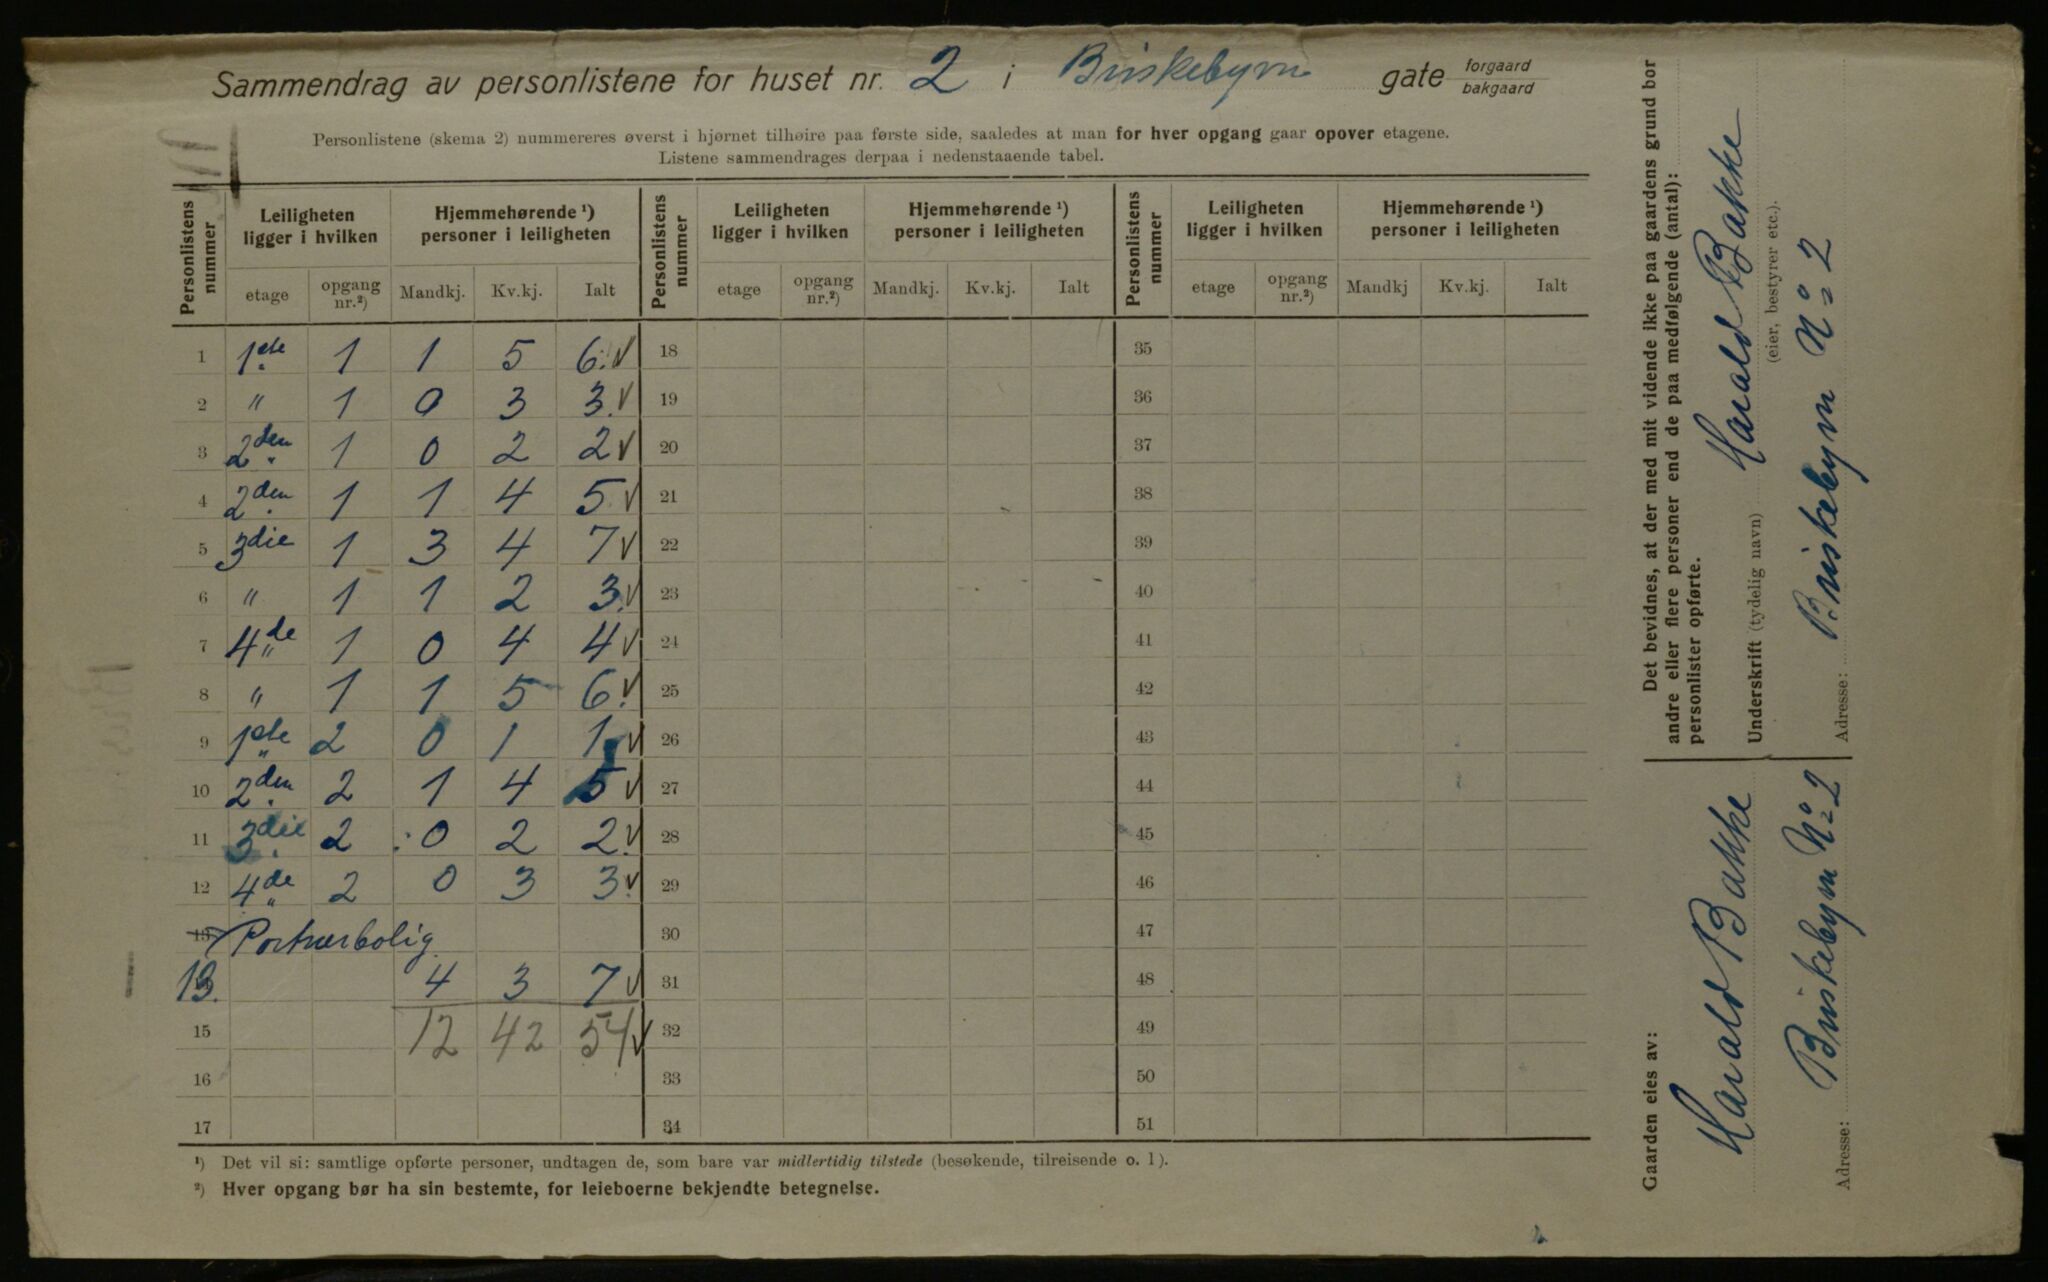 Sammendrag av personlistene for huset nr. 2 i Briskebyvn gate forgaard
bakgaard
Personlistene (skema 2) nummereres øverst i hjørnet tilhøire paa første side, saaledes at man for hver opgang gaar opover etagene.
Listene sammendrages derpaa i nedenstaaende tabel.
Personlistens nummer | Leiligheten ligger i hvilken | Hjemmehørende ¹) personer i leiligheten | Personlistens nummer | Leiligheten ligger i hvilken | Hjemmehørende ¹) personer i leiligheten | Personlistens nummer | Leiligheten ligger i hvilken | Hjemmehørende ¹) personer i leiligheten
etage | opgang nr.²) | Mandkj. | Kv.kj. | Ialt | etage | opgang nr.²) | Mandkj. | Kv.kj. | Ialt | etage | opgang nr.²) | Mandkj | Kv.kj. | Ialt
1 1ste 1 1 5 6. √ 18 35
2 " 1 0 3 3. √ 19 36
3 2den 1 0 2 2 √ 20 37
4 2den 1 1 4 5 √ 21 38
5 3die 1 3 4 7 √ 22 39
6 " 1 1 2 3. √ 23 40
7 4de 1 0 4 4 √ 24 41
8 " 1 1 5 6. √ 25 42
9 1ste 2 0 1 1 √ 26 43
10 2den 2 1 4 5 √ 27 44
11 3die 2 0 2 2. √ 28 45
12 4de 2 0 3 3. √ 29 46
13 Portnerbolig 30 47
13. 4 3 7 √ 31 48
15 12 42 54 √ 32 49
16 33 50
17 34 51
¹) Det vil si: samtlige opførte personer, undtagen de, som bare var midlertidig tilstede (besøkende, tilreisende o. l).
²) Hver opgang bør ha sin bestemte, for leieboerne bekjendte betegnelse.
Det bevidnes, at der med mit vidende ikke paa gaardens grund bor
andre eller flere personer end de paa medfølgende (antal):
personlister opførte.
Underskrift (tydelig navn) Harald Bakke
(eier, bestyrer etc.).
Adresse: Briskebyvn No 2
Gaarden eies av:
Harald Bakke
Adresse: Briskebyvn No 2